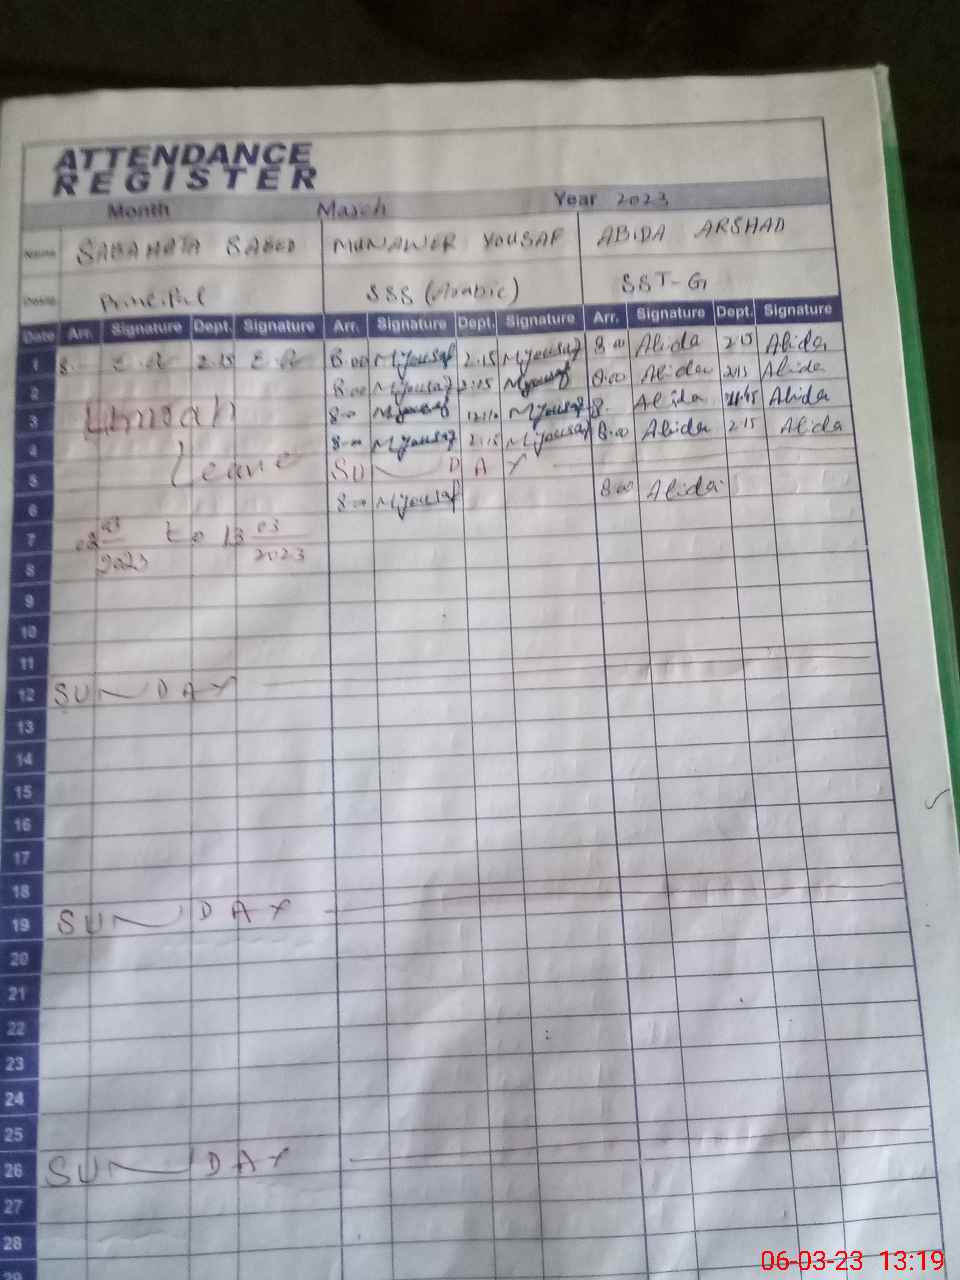 ATTENDANCE
REGISTER
Month March Year 2023
Name SABAHATA SAEED MUNAWER YOUSAF ABIDA ARSHAD
Desig. Principal SSS (Arabic) SST-G
Date Arr. Signature Dept. Signature Arr. Signature Dept. Signature Arr. Signature Dept. Signature
1 8 2.15 8.00 MYousaf 2.15 MYousaf 8.00 Abida 2.15 Abida
2 8.00 MYousaf 2:15 MYousaf 8.00 Abida 2:15 Abida
3 Umrah 8.00 MYousaf MYousaf 8. Abida Abida
4 8.00 MYousaf 2:15 MYousaf 8.00 Abida 2.15 Abida
5 Leave SUNDAY
6 8.00 MYousaf 8.00 Abida
7 03/2023 to 13 03/2023
8
9
10
11
12 SUNDAY
13
14
15
16
17
18
19 SUNDAY
20
21
22
23
24
25
26 SUNDAY
27
28
29
06-03-23 13:19